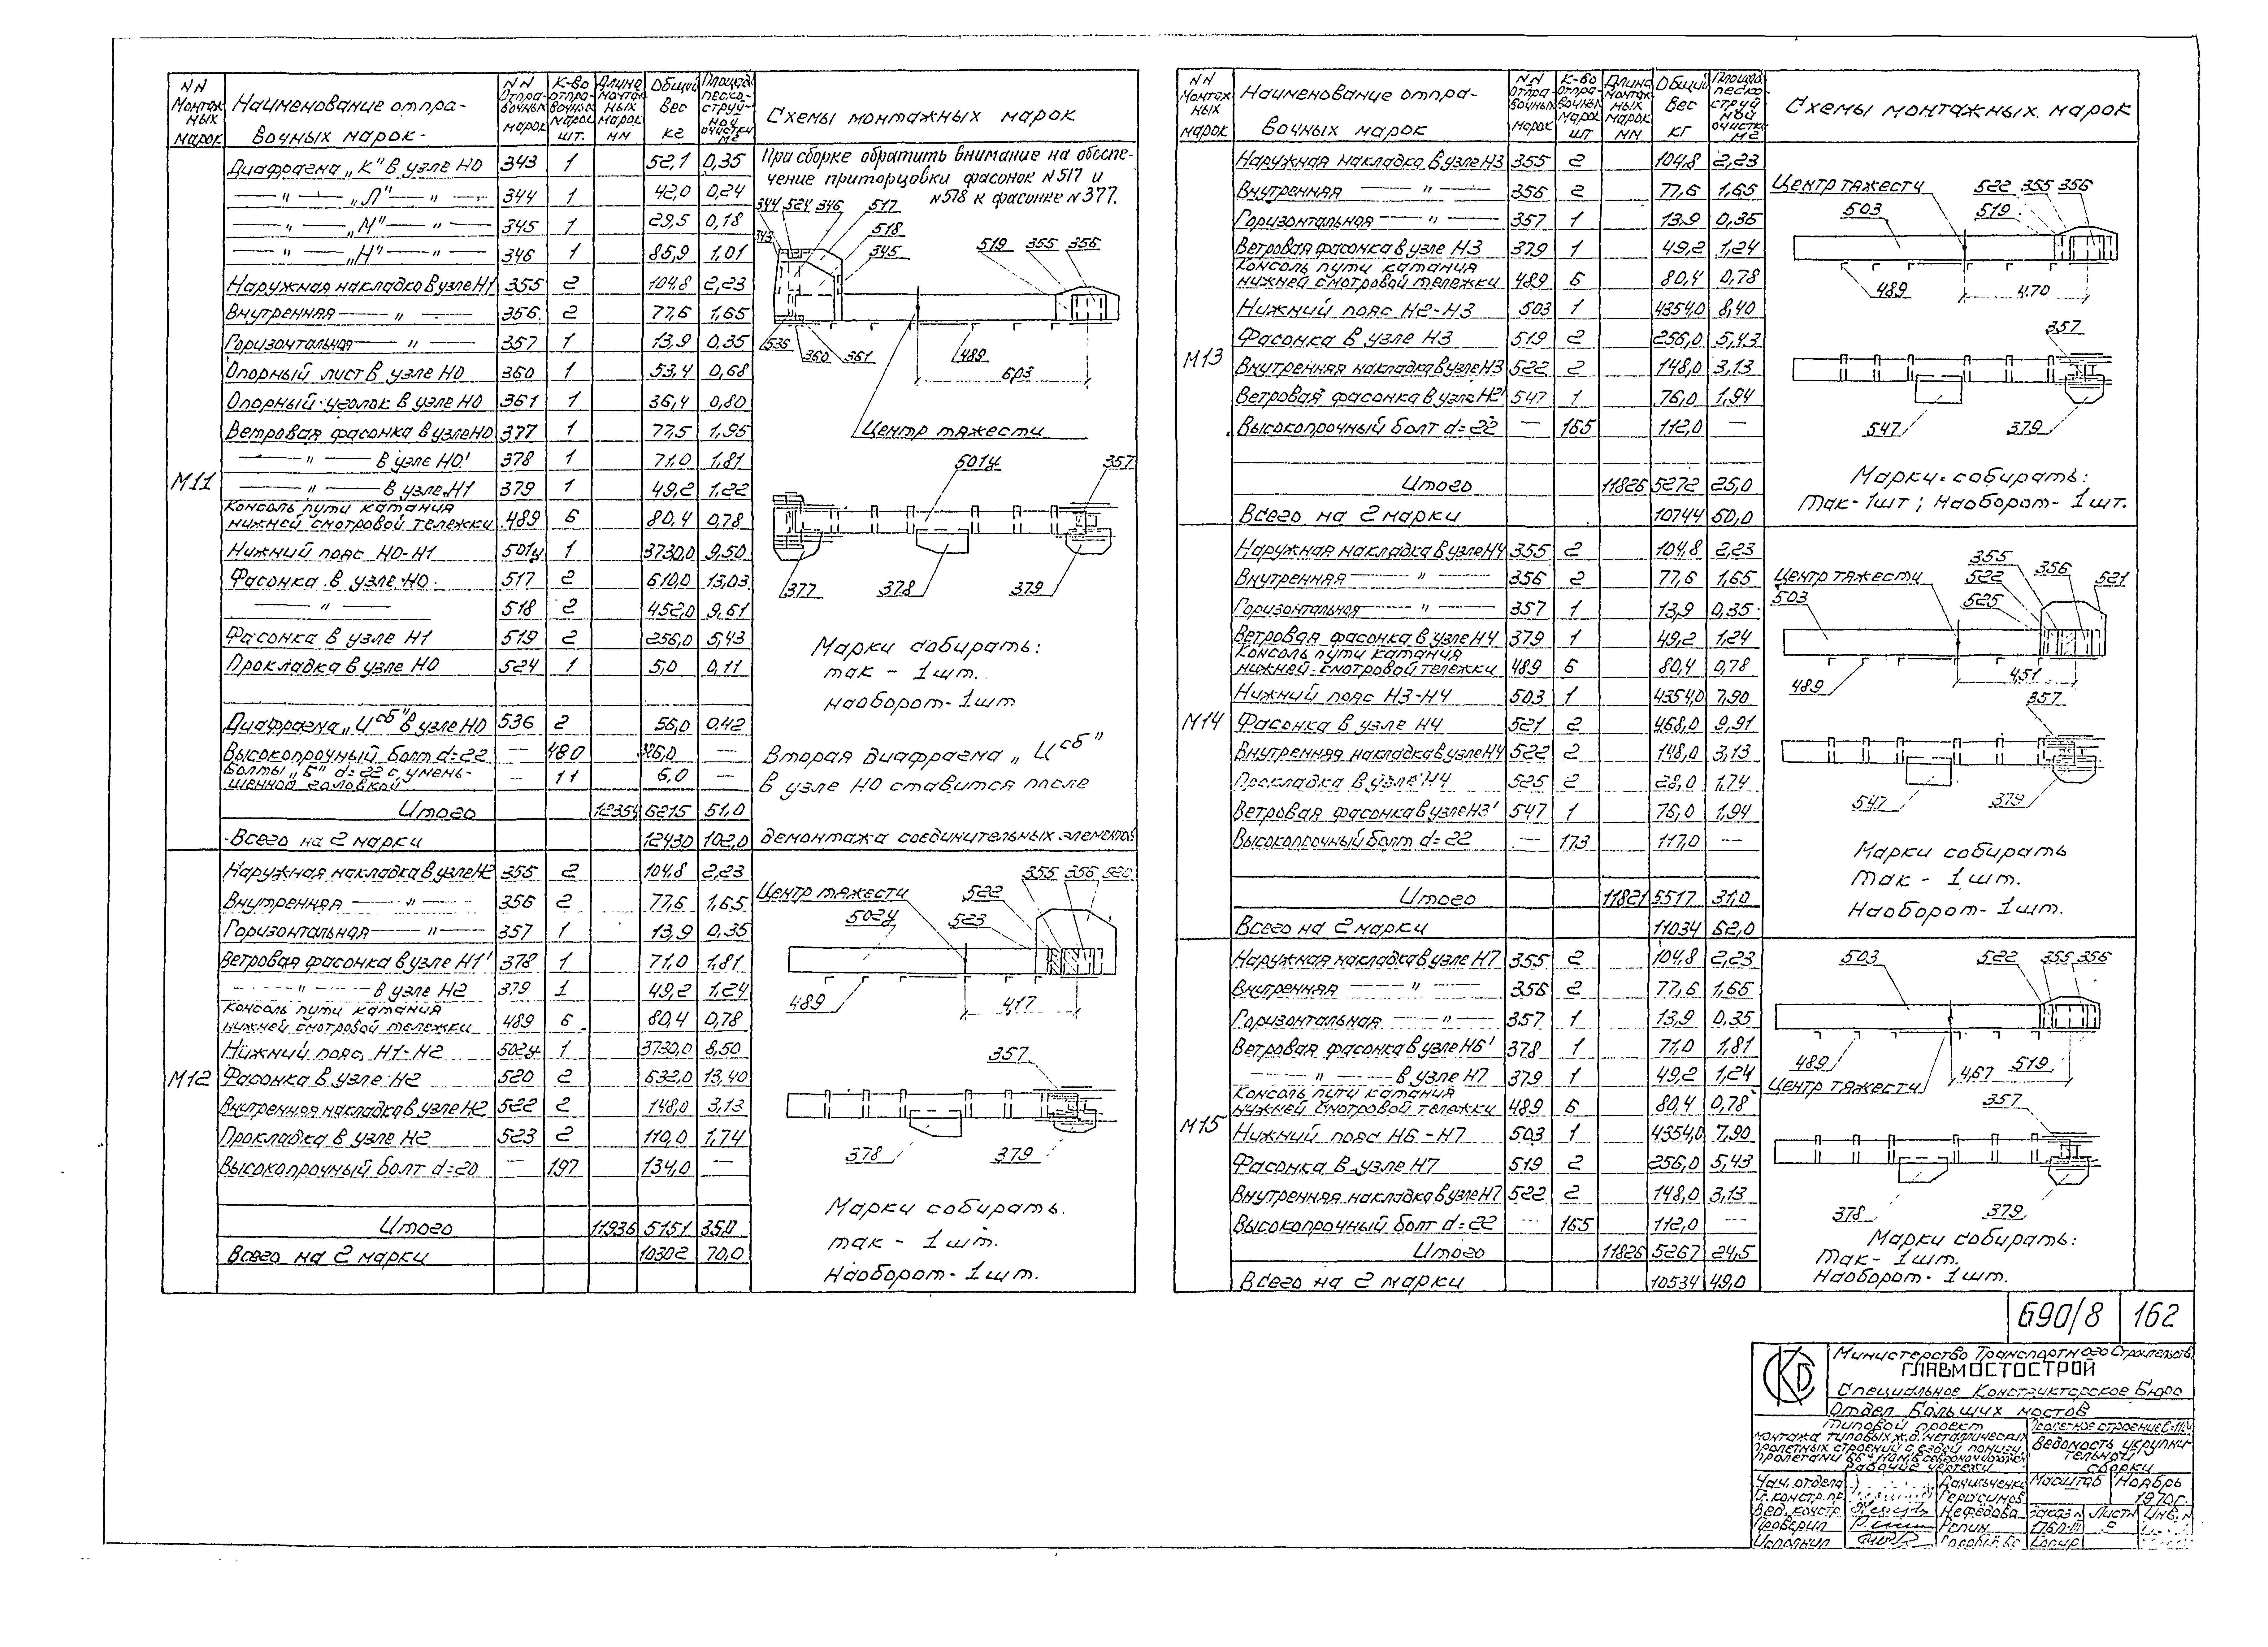 NN Монтажных марок | Наименование отправочных марок | NN Отправочных марок | К-во отправочных марок шт. | Длина монтажных марок мм | Общий вес кг | Площадь пескоструйной очистки м2 | Схемы монтажных марок
М11
Диафрагма „К" в узле Н0 343 1 52,1 0,35
— " — „Л" — " — 344 1 42,0 0,24
— " — „М" — " — 345 1 29,5 0,18
— " — „Н" — " — 346 1 85,9 1,01
Наружная накладка в узле Н1 355 2 104,8 2,23
Внутренняя — " — 356 2 77,6 1,65
Горизонтальная — " — 357 1 13,9 0,35
Опорный лист в узле Н0 360 1 53,4 0,68
Опорный уголок в узле Н0 361 1 36,4 0,80
Ветровая фасонка в узле Н0 377 1 77,5 1,95
— " — в узле Н0' 378 1 71,0 1,81
— " — в узле Н1 379 1 49,2 1,22
Консоль пути катания
нижней смотровой тележки 489 6 80,4 0,78
Нижний пояс Н0-Н1 501у 1 3730,0 9,50
Фасонка в узле Н0 517 2 610,0 13,03
— " — 518 2 452,0 9,61
Фасонка в узле Н1 519 2 256,0 5,43
Прокладка в узле Н0 524 1 5,0 0,11
Диафрагма „Ц сб" в узле Н0 536 2 56,0 0,42
Высокопрочный болт d=22 — 480 326,0 —
Болты „Б" d=22 с умень-
шенной головкой — 11 6,0 —
Итого 12354 6215 51,0
Всего на 2 марки 12430 102,0
При сборке обратить внимание на обеспе-
чение приторцовки фасонок N517 и
N518 к фасонке N377.
344 524 346 517
343 518
345 519 355 356
535 360 361 489
603
Центр тяжести
501у 357
377 378 379
Марки собирать:
так - 1 шт.
наоборот - 1 шт
Вторая диафрагма „Ц сб"
в узле Н0 ставится после
демонтажа соединительных элементов
М12
Наружная накладка в узле Н2 355 2 104,8 2,23
Внутренняя — " — 356 2 77,6 1,65
Горизонтальная — " — 357 1 13,9 0,35
Ветровая фасонка в узле Н1' 378 1 71,0 1,81
— " — в узле Н2 379 1 49,2 1,24
Консоль пути катания
нижней смотровой тележки 489 6 80,4 0,78
Нижний пояс Н1-Н2 502у 1 3730,0 8,50
Фасонка в узле Н2 520 2 632,0 13,40
Внутренняя накладка в узле Н2 522 2 148,0 3,13
Прокладка в узле Н2 523 2 110,0 1,74
Высокопрочный болт d=20 — 197 134,0 —
Итого 11936 5151 35,0
Всего на 2 марки 10302 70,0
355 356 520
Центр тяжести 522
502у 523
489 417
357
378 379
Марки собирать.
так - 1 шт.
Наоборот - 1 шт.
NN Монтажных марок | Наименование отправочных марок | NN Отправочных марок | К-во отправочных марок шт | Длина монтажных марок мм | Общий вес кг | Площадь пескоструйной очистки м2 | Схемы монтажных марок
М13
Наружная накладка в узле Н3 355 2 104,8 2,23
Внутренняя — " — 356 2 77,6 1,65
Горизонтальная — " — 357 1 13,9 0,35
Ветровая фасонка в узле Н3 379 1 49,2 1,24
Консоль пути катания
нижней смотровой тележки 489 6 80,4 0,78
Нижний пояс Н2-Н3 503 1 4354,0 8,40
Фасонка в узле Н3 519 2 256,0 5,43
Внутренняя накладка в узле Н3 522 2 148,0 3,13
Ветровая фасонка в узле Н2' 547 1 76,0 1,94
Высокопрочный болт d=22 — 165 112,0 —
Итого 11826 5272 25,0
Всего на 2 марки 10744 50,0
Центр тяжести 522 355 356
503 519
489 4.70
357
547 379
Марки собирать:
Так - 1шт ; Наоборот - 1 шт.
М14
Наружная накладка в узле Н4 355 2 104,8 2,23
Внутренняя — " — 356 2 77,6 1,65
Горизонтальная — " — 357 1 13,9 0,35
Ветровая фасонка в узле Н4 379 1 49,2 1,24
Консоль пути катания
нижней смотровой тележки 489 6 80,4 0,78
Нижний пояс Н3-Н4 503 1 4354,0 7,90
Фасонка в узле Н4 521 2 468,0 9,91
Внутренняя накладка в узле Н4 522 2 148,0 3,13
Прокладка в узле Н4 525 2 28,0 1,74
Ветровая фасонка в узле Н3' 547 1 76,0 1,94
Высокопрочный болт d=22 — 173 117,0 —
Итого 11821 5517 31,0
Всего на 2 марки 11034 62,0
355
Центр тяжести 522 356 521
503 525
489 4,51
357
547 379
Марки собирать
Так - 1 шт.
Наоборот - 1 шт.
М15
Наружная накладка в узле Н7 355 2 104,8 2,23
Внутренняя — " — 356 2 77,6 1,65
Горизонтальная — " — 357 1 13,9 0,35
Ветровая фасонка в узле Н6' 378 1 71,0 1,81
— " — в узле Н7 379 1 49,2 1,24
Консоль пути катания
нижней смотровой тележки 489 6 80,4 0,78
Нижний пояс Н6-Н7 503 1 4354,0 7,90
Фасонка в узле Н7 519 2 256,0 5,43
Внутренняя накладка в узле Н7 522 2 148,0 3,13
Высокопрочный болт d=22 — 165 112,0 —
Итого 11826 5267 24,5
Всего на 2 марки 10534 49,0
503 522 355 356
489 4,67 519
Центр тяжести
357
378 379
Марки собирать:
Так - 1 шт.
Наоборот - 1 шт.
690/8 162
Министерство Транспортного Строительств
ГЛАВМОСТОСТРОЙ
Специальное Конструкторское Бюро
Отдел Больших мостов
Типовой проект
монтажа типовых ж.д. металлических
пролетных строений с ездой понизу
пролетами
Рабочие чертежи
Пролетное строение
Ведомость укрупни-
тельной
сборки
Нач. отдела Данильченко Масштаб Ноябрь
Гл. констр. пр. Герасимов 1970г.
Вед. констр. Нефедова Заказ N Листы Инв. N
Проверил Репин
Исполнил Копир